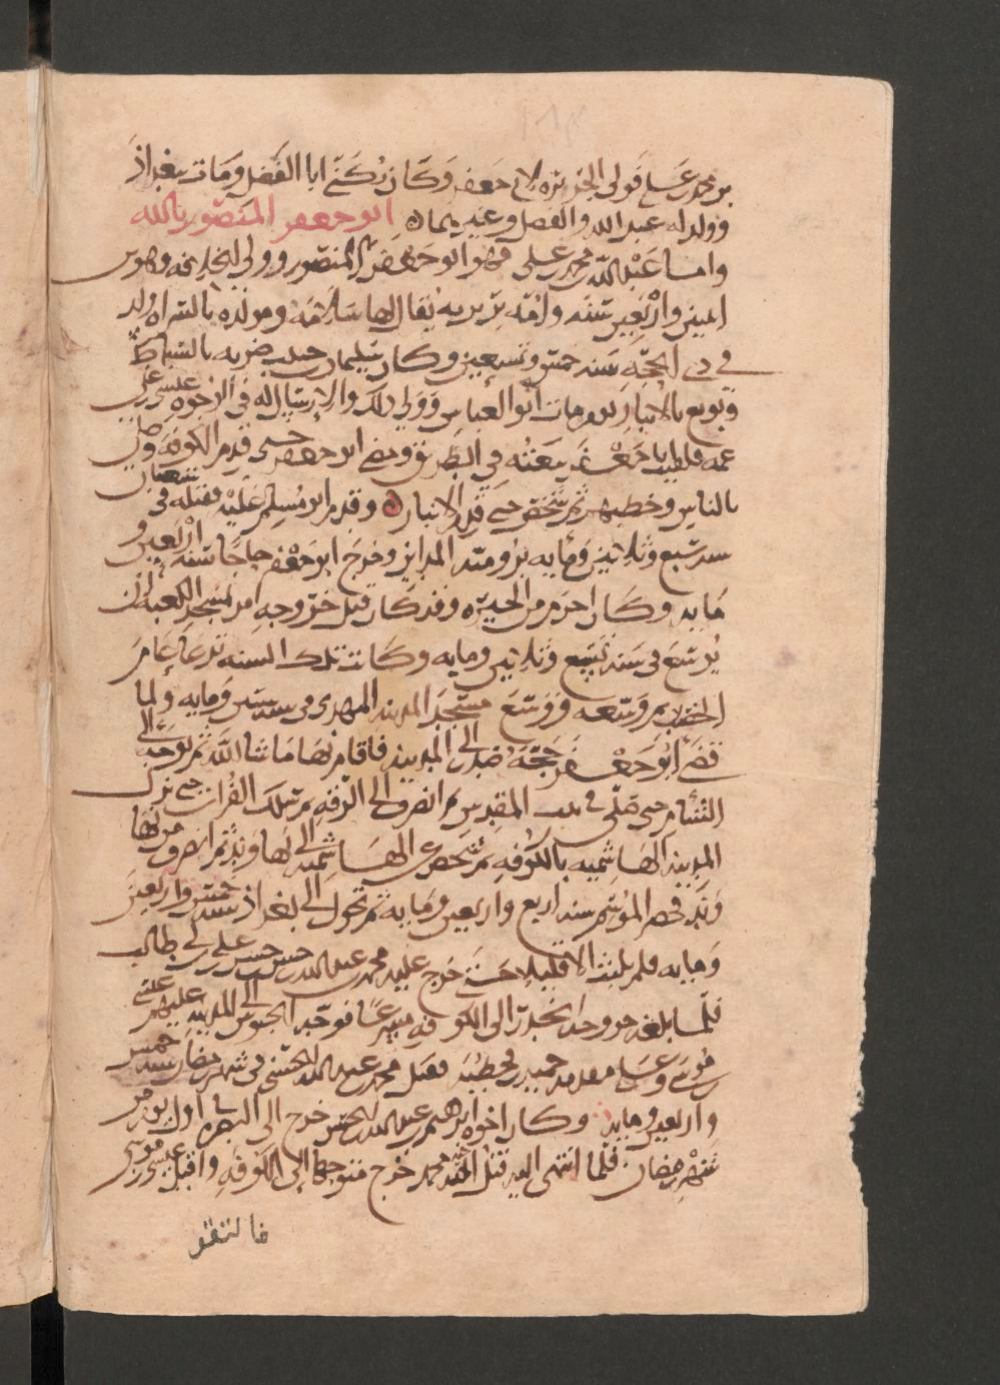 بن محمد بن علي فولى الجزيره لابي جعفر وكان يكنى ابا الفضل ومات ببغداذ
وولد له عبد الله والفضل وغيرهما ابو جعفر المنصور بالله
واما عبد الله بن محمد بن علي فهو ابو جعفر المنصور وولي الخلافه وهو بن
اثنين واربعين سنه وامه بربريه يقال لها سلامه ومولده بالشراه ولد
في ذي الحجه سنه خمس وتسعين وكان سليمان بن حبيب ضربه بالسياط
وبويع بالانبار يوم مات ابو العباس وولي ذلك والارسال له في الاخوه عيسى بن علي
عمه فلقيت ابا جعفر بيعته في الطريق ومضى ابو جعفر حتى قدم الكوفه وصلى
بالناس وخطبهم ثم شخص حتى قدم الانبار وقدم ابو مسلم عليه فقتله في شعبان
سنه سبع وثلاثين ومايه برومية المداين وخرج ابو جعفر حاجا سنه اربعين و
مايه وكان احرم من الحيره وقد كان قبل خروجه امر لمسجد الكعبه ان
يوسع في سنه تسع وثلاثين ومايه وكانت تلك السنه تدعا عام
الخصب ثم وسعه ووسع مسجد المدينه المهدي في سنه ستين ومايه ولما
قضى ابو جعفر حجه صدر الى المدينه فاقام بها ما شا الله ثم توجه الى
الشام حتى صلى في بيت المقدس ثم انصرف الى الرقه ثم سلك الفرات حتى نزل
المدينه الهاشميه بالكوفه ثم شخص عن الهاشميه الى نهاوند ثم انصرف من نها
وند فحضر الموسم سنه اربع واربعين ومايه ثم تحول الى بغداذ سنه خمس واربعين
ومايه فلم يلبث الا قليلا حتى خرج عليه محمد بن عبد الله بن حسن بن حسن بن علي بن ابي طالب
فلما بلغه خروجه انحدر الى الكوفه مسرعا فوجه الجيوش الى المدينه عليهم عيسى
بن موسى وعلى مقدمته حميد بن قحطبه فقتل محمد بن عبد الله الحسنى في شهر رمضان سنه خمس
واربعين ومايه وكان اخوه ابرهيم بن عبد الله بن الحسن خرج الى البصره في اول يوم من
شهر رمضان فلما انتهى اليه قتل اخيه محمد خرج متوجها الى الكوفه واقبل عيسى بن موسى
فالتقو